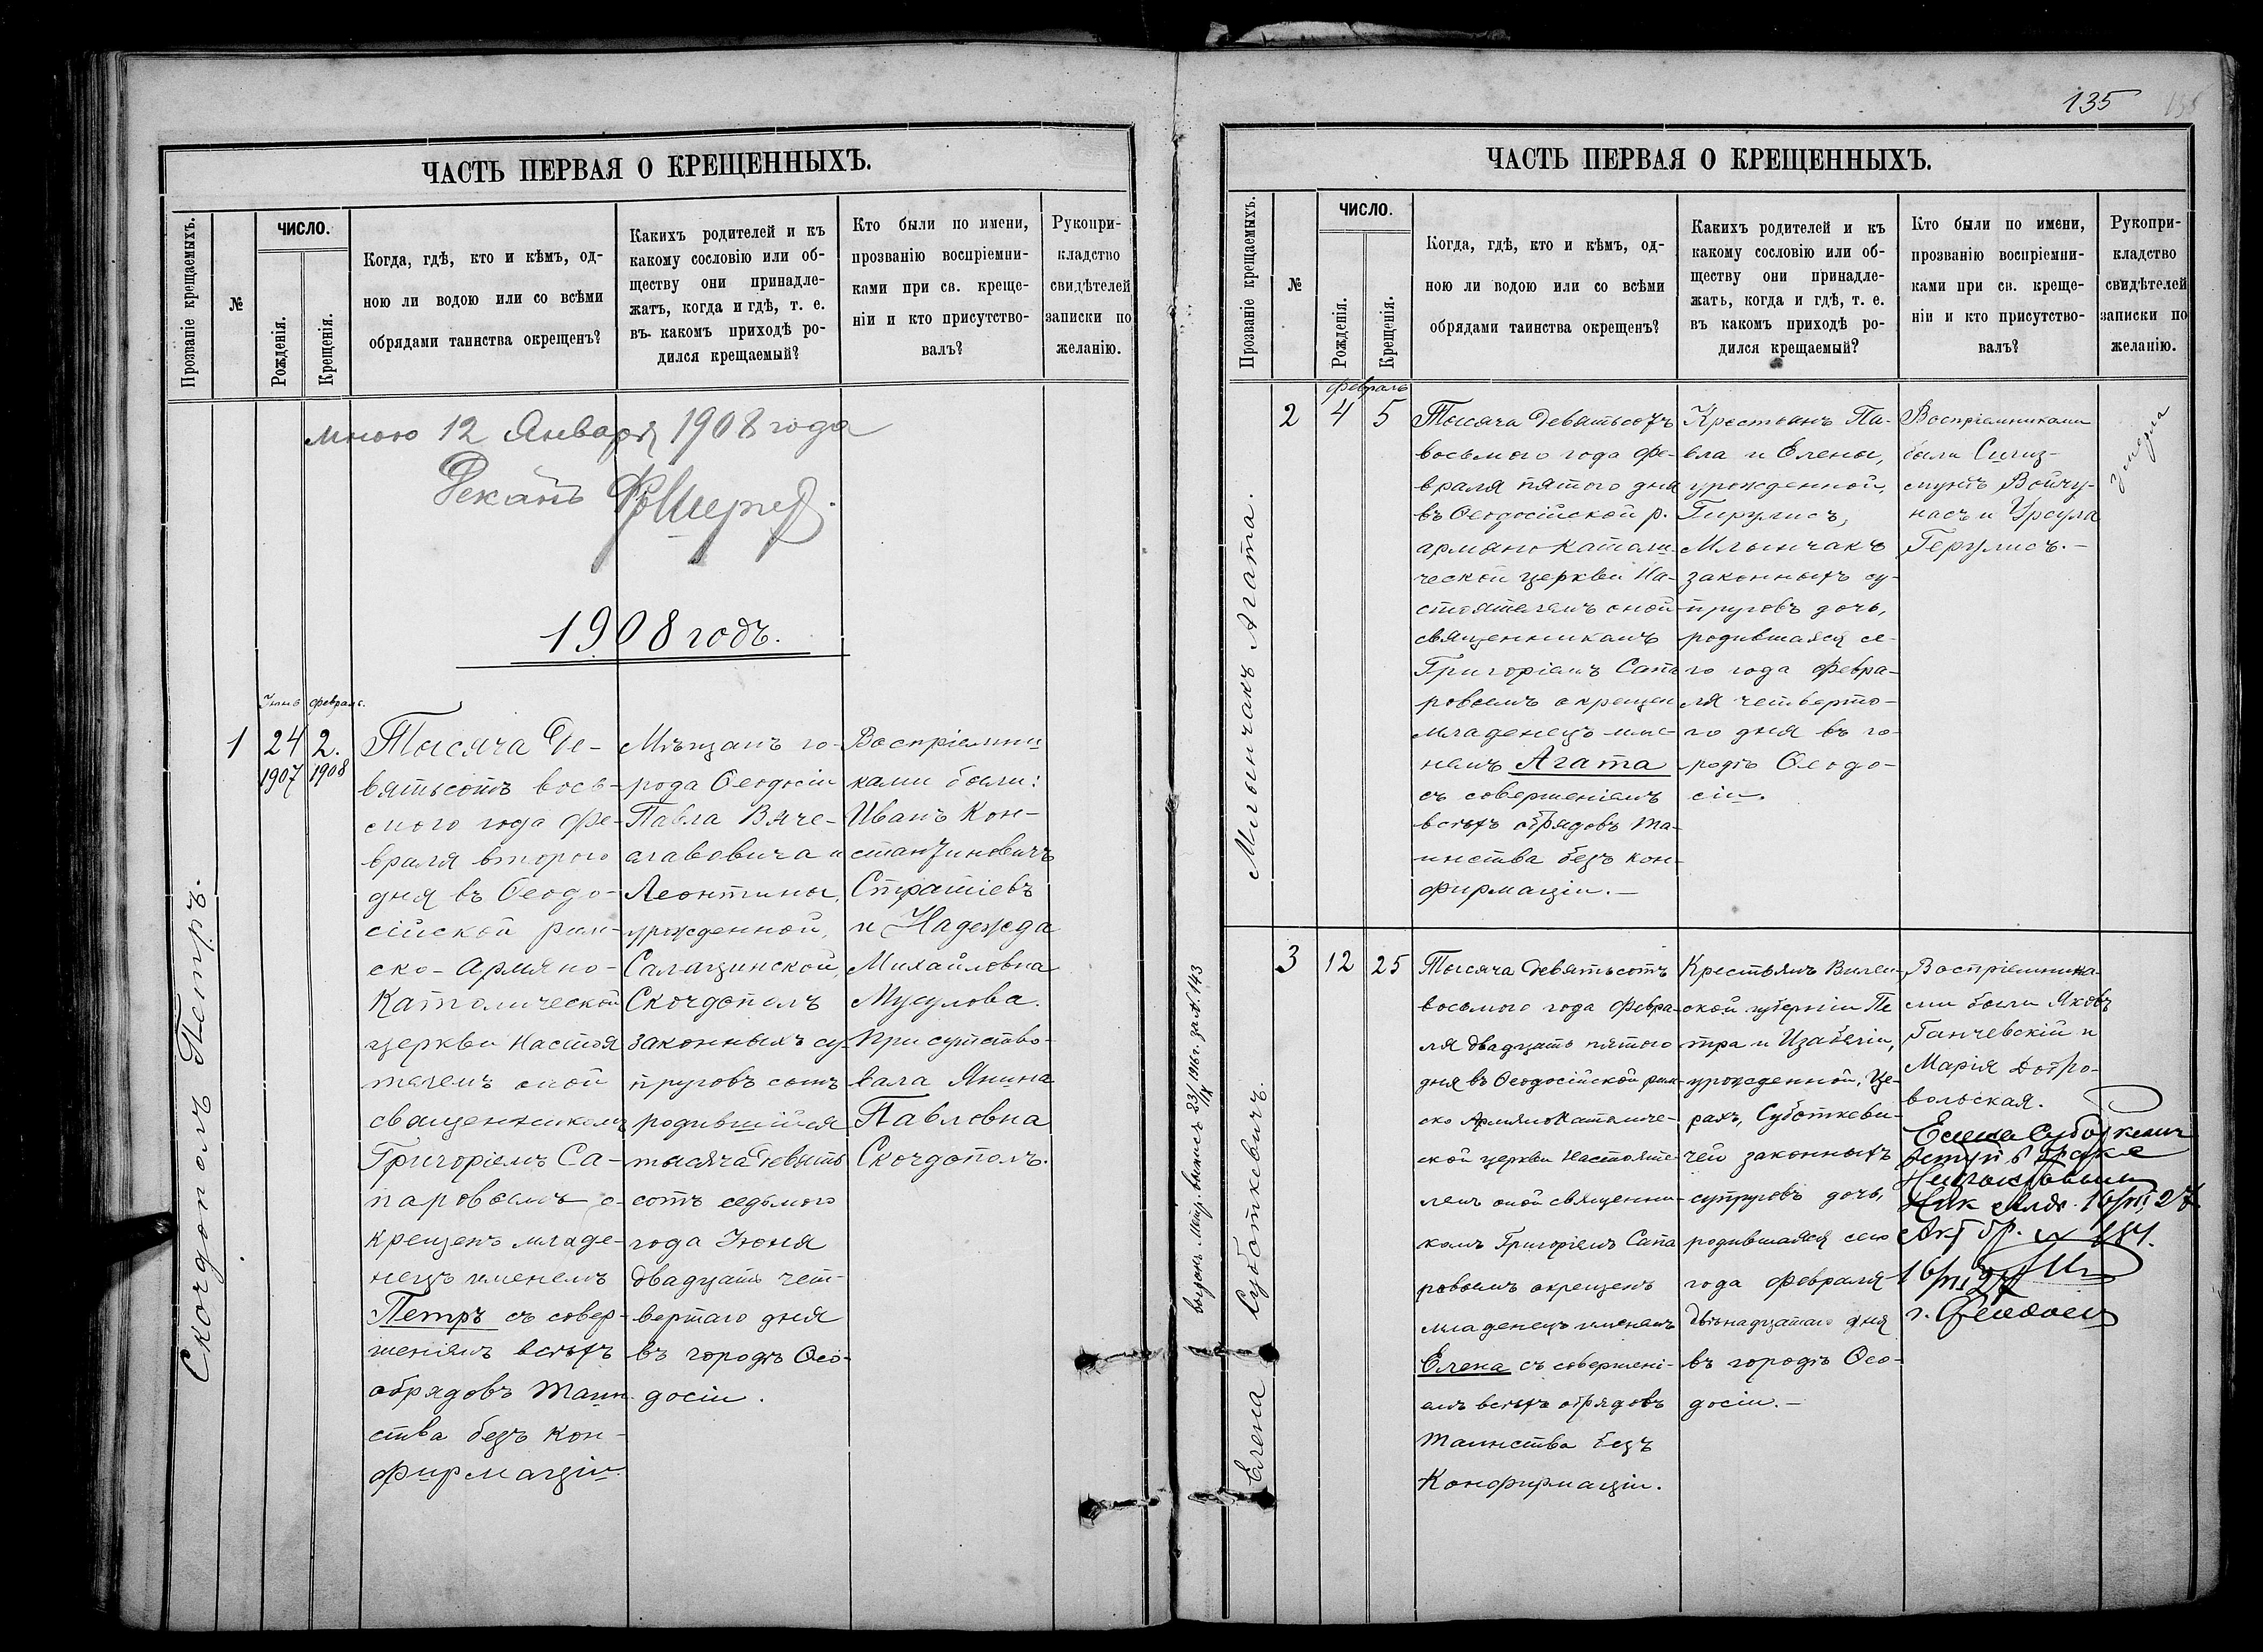 ЧАСТЬ ПЕРВАЯ О КРЕЩЕННЫХЪ.
Прозваніе крещаемыхъ.
№
ЧИСЛО.
Рожденія.
Крещенія.
Когда, гдѣ, кто и кѣмъ, од-
ною ли водою или со всѣми
обрядами таинства окрещенъ?
Какихъ родителей и къ
какому сословію или об-
ществу они принадле-
жатъ, когда и гдѣ, т. е.
въ какомъ приходѣ ро-
дился крещаемый?
Кто были по имени,
прозванію воспріемни-
ками при св. креще-
ніи и кто присутство-
валъ?
Рукопри-
кладство
свидѣтелей
записки по
желанію.
мною 12 Января 1908 года
Деканъ
1908 годъ.
Скочдополъ Петръ.
1
Іюнь
24
1907
Февраль.
2.
1908
Тысяча Де-
вятьсотъ вось-
мого года Фе-
враля второго
дня въ Ѳеодо-
сійской рим-
ско-Армяно-
Католической
церкви Настоя
телемъ оной
священникомъ
Григоріемъ Са-
паровымъ о-
крещенъ младе-
нецъ именемъ
Петръ съ совер-
шеніемъ всѣхъ
обрядовъ Таин-
ства безъ кон-
фирмаціи.
Мѣщанъ го-
рода Ѳеодосіи
Павла Вяче-
славовича и
Леонтины,
урожденной,
Салащинской,
Скочдополъ
законныхъ су-
пруговъ сынъ
родившійся
тысяча девять
сотъ седьмого
года Іюня
двадцать чет-
вертаго дня
въ городѣ Ѳео-
досіи.
Воспріемни
ками были:
Иванъ Кон-
стантиновичъ
Стратіевъ
и Надежда
Михайловна
Мусулова.
Присутство-
вала Янина
Павловна
Скочдополъ.
135
ЧАСТЬ ПЕРВАЯ О КРЕЩЕННЫХЪ.
Прозваніе крещаемыхъ.
№
ЧИСЛО.
Рожденія.
Крещенія.
Когда, гдѣ, кто и кѣмъ, од-
ною ли водою или со всѣми
обрядами таинства окрещенъ?
Какихъ родителей и къ
какому сословію или об-
ществу они принадле-
жатъ, когда и гдѣ, т. е.
въ какомъ приходѣ ро-
дился крещаемый?
Кто были по имени,
прозванію воспріемни-
ками при св. креще-
ніи и кто присутство-
валъ?
Рукопри-
кладство
свидѣтелей
записки по
желанію.
Млынчакъ Агата.
2
Февраль
4
5
Тысяча девятьсотъ
восьмого года Фе-
враля пятого дня
въ Ѳеодосійской р.
армяно католи-
ческой церкви На-
стоятелемъ оной
священникомъ
Григоріемъ Сапа
ровымъ окрещен
младенецъ име-
немъ Агата
съ совершеніемъ
всѣхъ обрядовъ Та-
инства безъ кон-
фирмаціи.—
Крестьянъ Па-
вла и Елены,
урожденной,
Гирулисъ,
Млынчакъ
законныхъ су-
пруговъ дочь,
родившаяся се-
го года Февра-
ля четверто-
го дня въ го-
родѣ Ѳеодо-
сіи.
Воспріемниками
были Сигиз-
мундъ Войчу-
насъ и Урсула
Герулисъ.—
Суботкевичъ.
Елена
выданъ Метр. выпись 23/IX 1916г. за №. 143
3
12
25
Тысяча девятьсотъ
восьмого года Февра-
ля двадцать пятого
дня въ Ѳеодосійской рим-
ско Армяно Католиче-
ской церкви Настояте-
лемъ оной священни-
комъ Григоріемъ Сапа
ровымъ окрещенъ
младенецъ именемъ
Елена съ совершені-
емъ всѣхъ обрядовъ
Таинства безъ
Конфирмаціи.
Крестьянъ Вилен-
ской губерніи Пе
тра и Изабеліи,
урожденной, Це-
рахъ, Суботкеви-
чей законныхъ
супруговъ дочь,
родившаяся сего
года Февраля
двѣнадцатаго дня
въ городѣ Ѳео-
досіи.—
Воспріемника-
ми были Яковъ
Ганчевскій и
Марія Добро-
вольская.
Елена Суботкевич
16/VII 27
г. Феодосия